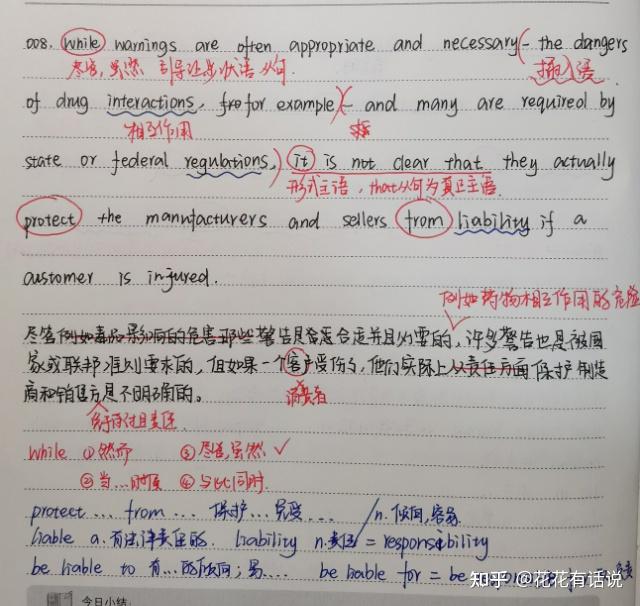 008. While warnings are often appropriate and necessary – the dangers
尽管,虽然 引导让步状语从句. 插入语
of drug interactions, for example – and many are required by
相互作用
state or federal regulations, it is not clear that they actually
形式主语, that从句为真正主语.
protect the manufacturers and sellers from liability if a
customer is injured.
例如药物相互作用的危险
尽管例如毒品影响的危害那些警告是合适并且必要的,许多警告也是被国
家或联邦准则要求的,但如果一个客户受伤了,他们实际上从责任方面保护制造
消费者
商和销售方是不明确的。
while ①然而 ③尽管,虽然 ✓
②当…时候 ④与此同时
protect … from … 保护…免受… n. 倾向,容易
liable a. 有法律责任的. liability n. 责任 = responsibility
be liable to 有…的倾向;易… be liable for = be
今日小结
知乎 @花花有话说